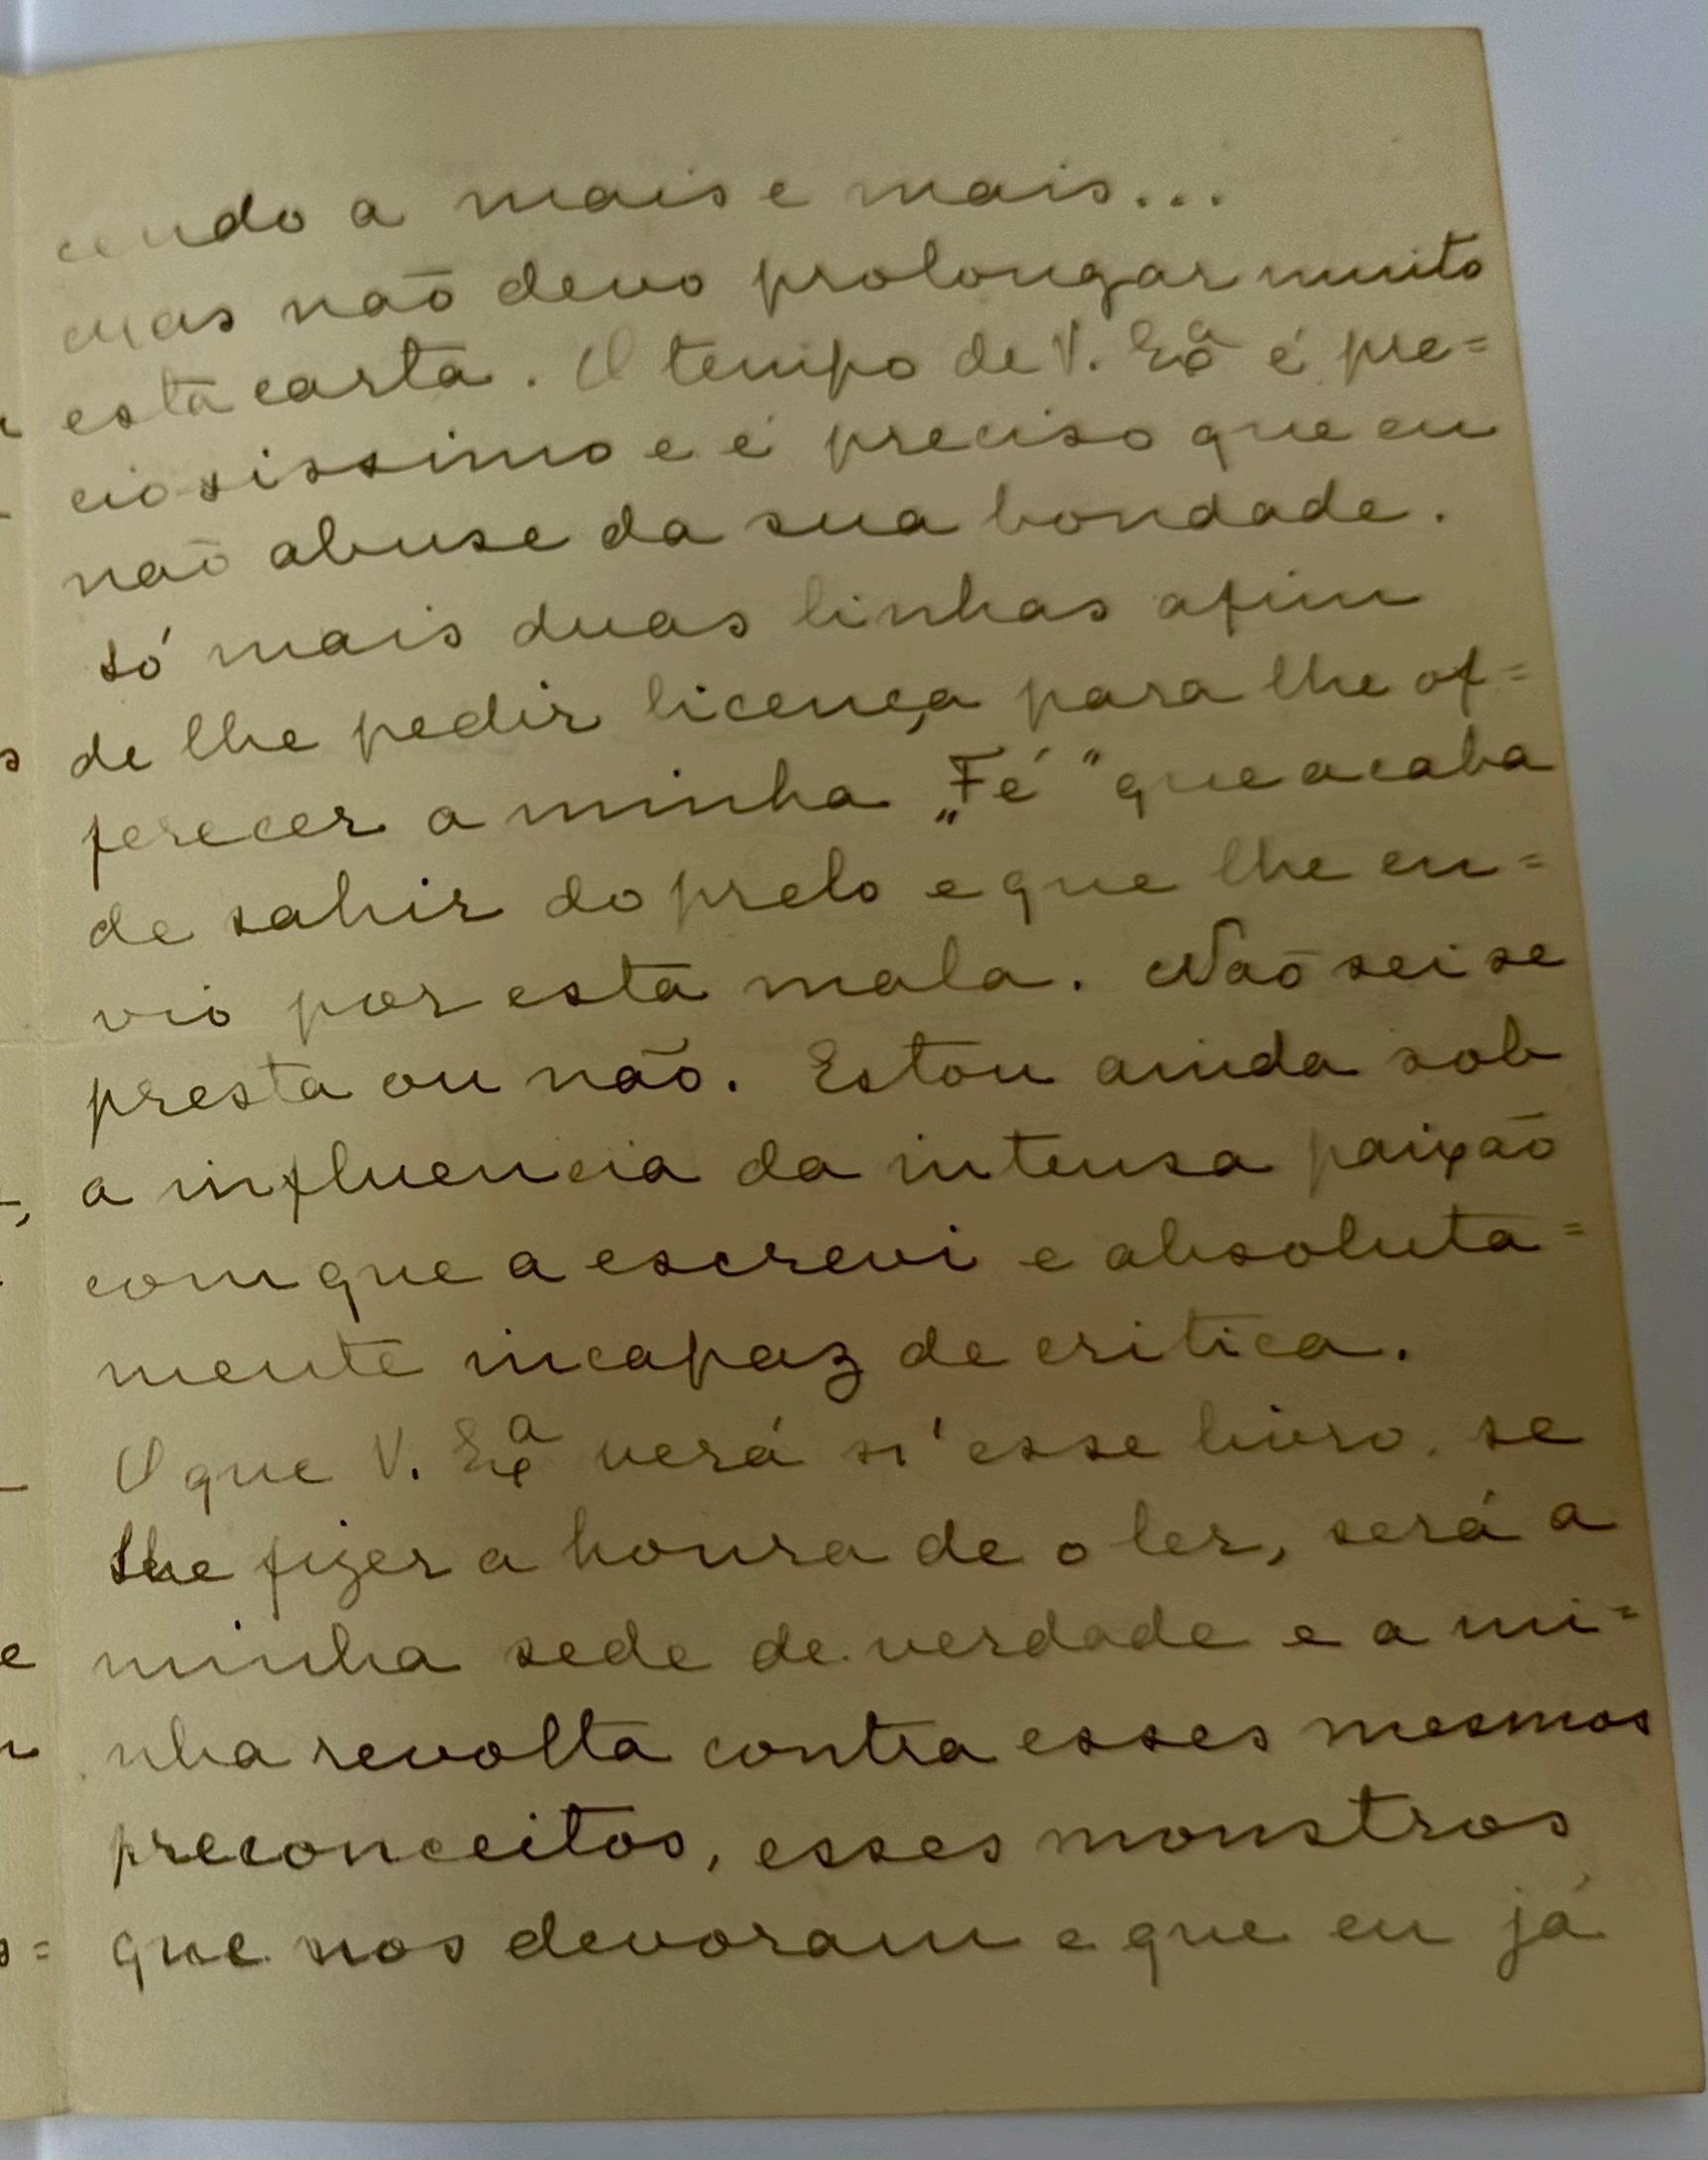 cendo a mais e mais...
Mas não devo prolongar muito
esta carta. O tempo de V. Exª é pre=
ciosissimo e é preciso que eu
não abuse da sua bondade.
Só mais duas linhas afim
de lhe pedir licença para lhe of=
ferecer a minha „Fé" que acaba
de sahir do prelo e que lhe en=
vio por esta mala. Não sei se
presta ou não. Estou ainda sob
a influencia da intensa paixão
com que a escrevi e absoluta=
mente incapaz de critica.
O que V. Exª verá n'esse livro, se
lhe fizer a honra de o ler, será a
minha sede de verdade e a mi=
nha revolta contra esses mesmos
preconceitos, esses monstros
que nos devoram e que eu já